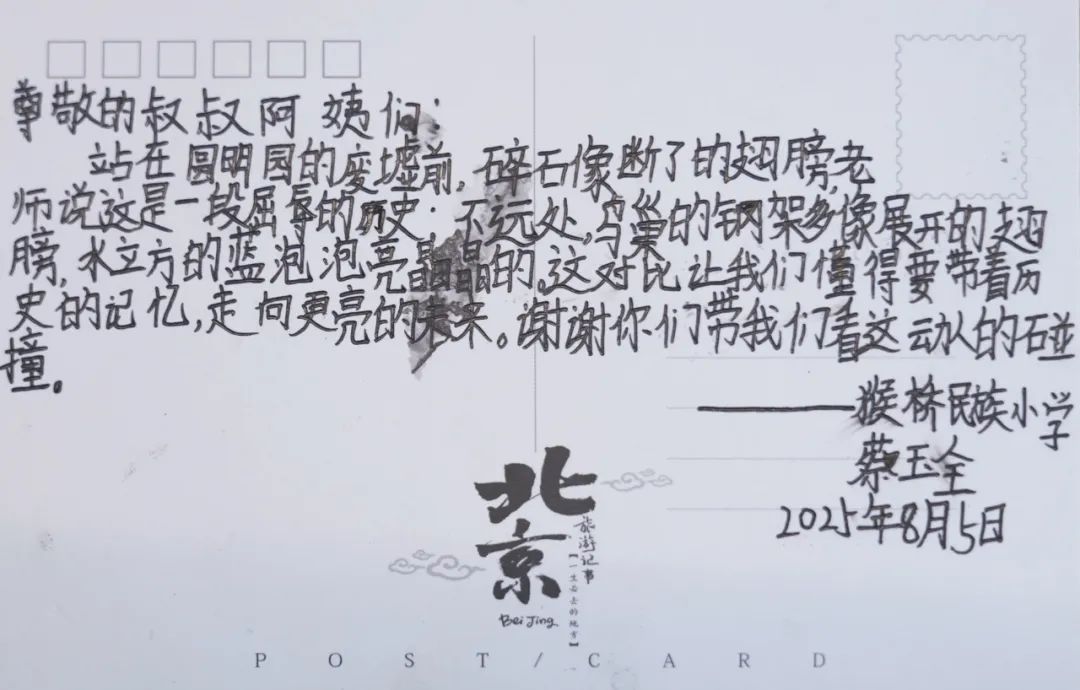 尊敬的叔叔阿姨们:
站在圆明园的废墟前,碎石像断了的翅膀,老
师说这是一段屈辱的历史;不远处,鸟巢的钢架多像展开的翅
膀,水立方的蓝泡泡亮晶晶的。这对比让我们懂得要带着历
史的记忆,走向更亮的未来。谢谢你们带我们看这动人的碰
撞。
——猴桥民族小学
蔡玉全
2025年8月5日
北京
旅游记事
【一生必去的地方】
Bei Jing
POST/CARD